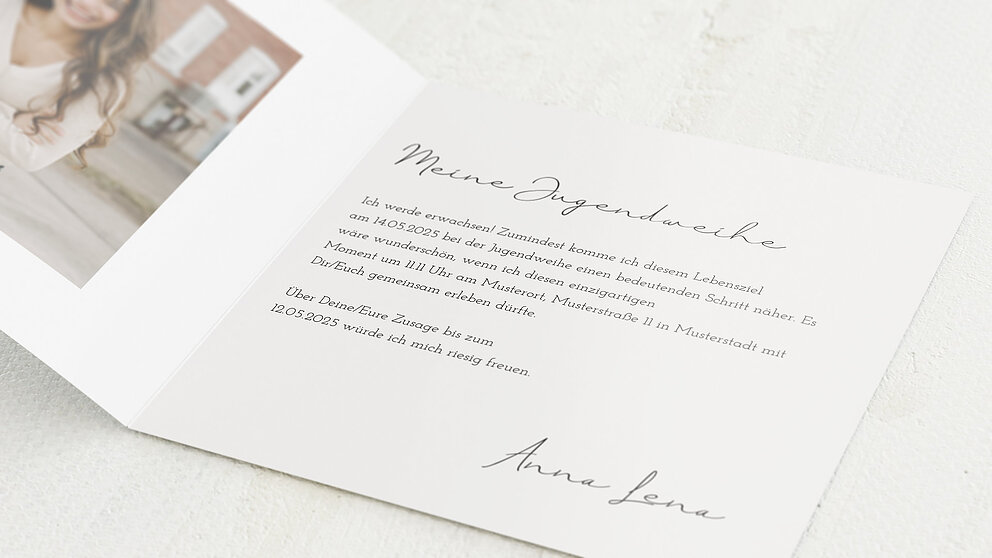 Meine Jugendweihe
Ich werde erwachsen! Zumindest komme ich diesem Lebensziel
am 14.05.2025 bei der Jugendweihe einen bedeutenden Schritt näher. Es
wäre wunderschön, wenn ich diesen einzigartigen
Moment um 11.11 Uhr am Musterort, Musterstraße 11 in Musterstadt mit
Dir/Euch gemeinsam erleben dürfte.
Über Deine/Eure Zusage bis zum
12.05.2025 würde ich mich riesig freuen.
Anna Lena